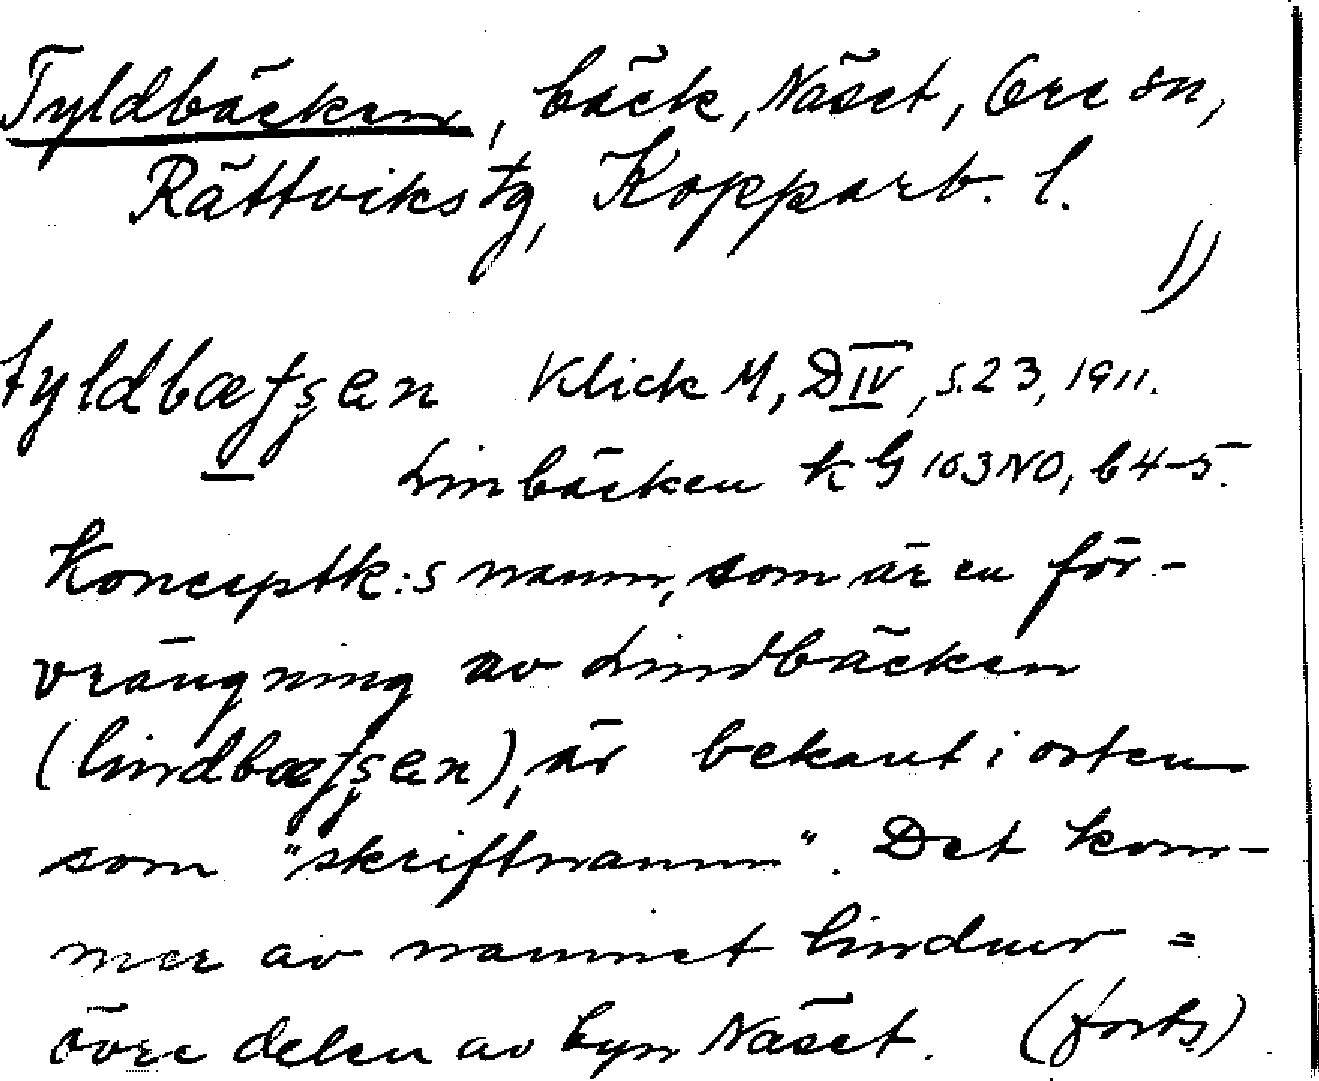 Tyldbäcken, bäck, Näset, Ore sn,
Rättviks tg, Kopparb. l.
1)
tyldbæƭşen Klick M, D IV, s. 23, 1911.
Linbäcken kG 103 NO, b 4-5.
Konceptk:s namn, som är en för-
vrängning av Lindbäcken
(lindbæƭşen), är bekant i orten
som "skriftnamn". Det kom-
mer av namnet linduv =
övre delen av byn Näset. (forts)